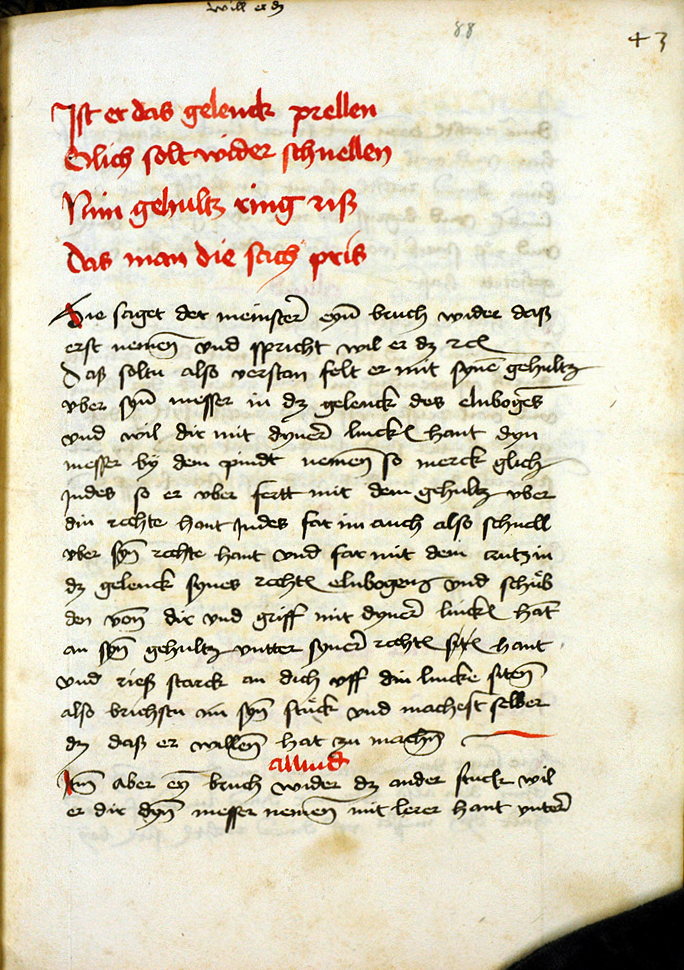 will er dz
88
43
Ist er das gelenck prellen
Glich solt wider schnellen
Nim gehultz ring riß
Das man die sach pris
Hie saget der meinster eyn bruch wider daß
erst nemen vnd spricht wil er dz rc
Daß soltu also verstan felt er mit synem gehultz
vber syn messer in dz gelenck des elnbogens
vnd wil dir mit dyner linck hant dyn
messer by dem pindt nemen so merck glich
Indes so er vber fertt mit dem gehultz vber
din rechte hant Indes far im auch also schnell
vber syn rechte hant vnd far mit dem crutz in
dz gelenck synes recht elnbogens vnd schub
den von dir vnd griff mit dyner linck hat
an syn gehultz vntter syner recht hant
vnd rieß starck an dich vff din lincke siten
also brichstu im syn stuck vnd machest selber
dz daß er willen hat zu machen
alliud
Nim aber ey bruch wider dz ander stuck wil
er dir dyn messer nemen mit lerer hant vnter